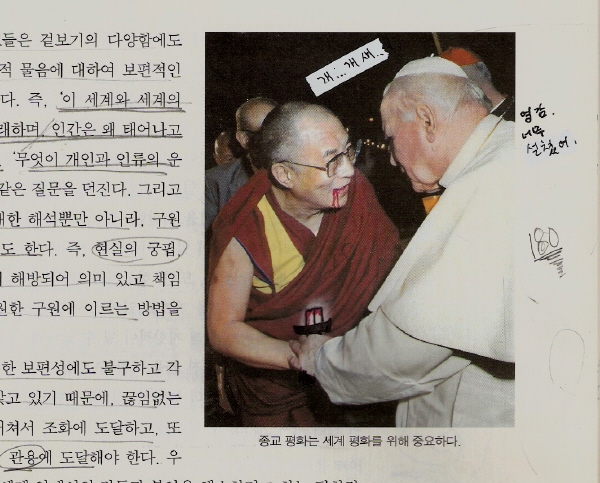 들은 겉보기의 다양함에도
적 물음에 대하여 보편적인
다. 즉, '이 세계와 세계의
래하며, 인간은 왜 태어나고
'무엇이 개인과 인류의 운
같은 질문을 던진다. 그리고
대한 해석뿐만 아니라, 구원
도 한다. 즉, 현실의 궁핍,
해방되어 의미 있고 책임
원한 구원에 이르는 방법을
한 보편성에도 불구하고 각
갖고 있기 때문에, 끊임없는
져서 조화에 도달하고, 또
관용에 도달해야 한다. 우
개...개새..
영감.
너무
설쳤어.
180
종교 평화는 세계 평화를 위해 중요하다.